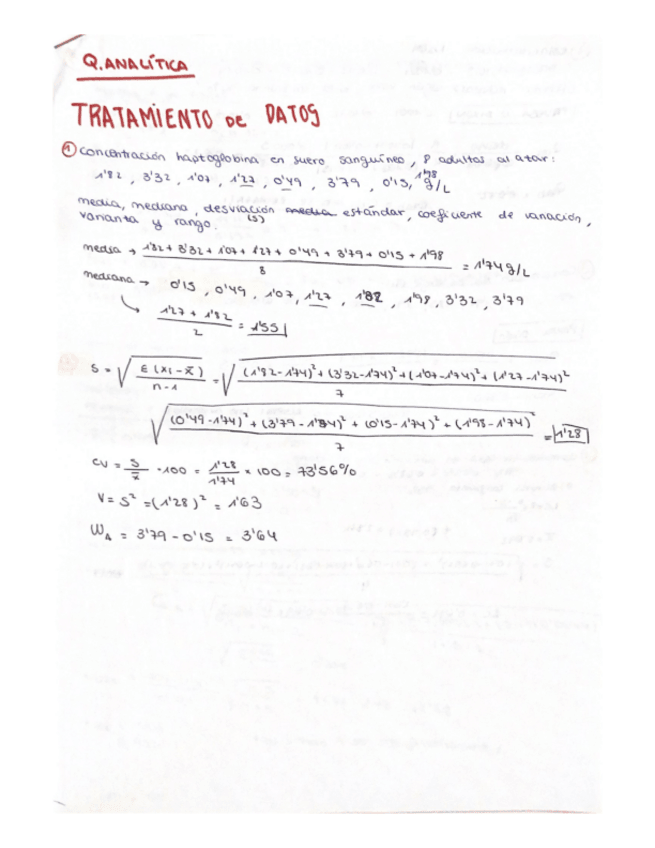 Q. ANALÍTICA
TRATAMIENTO DE DATOS
① concentración haptoglobina en suero sanguíneo, 8 adultos al azar:
1'82, 3'32, 1'07, 1'27, 0'49, 3'79, 0'15, 1'98 g/L
media, mediana, desviación media estándar, coeficiente de variación,
varianza y rango. (S)
media → 1'82 + 3'32 + 1'07 + 1'27 + 0'49 + 3'79 + 0'15 + 1'98 / 8 = 1'74 g/L
mediana → 0'15, 0'49, 1'07, 1'27, 1'82, 1'98, 3'32, 3'79
1'27 + 1'82 / 2 = 1'55
S = √ Σ(xi - x̄) / n-1 = √ (1'82-1'74)² + (3'32-1'74)² + (1'07-1'74)² + (1'27-1'74)² / 7
√ (0'49-1'74)² + (3'79-1'74)² + (0'15-1'74)² + (1'98-1'74)² / 7 = 1'28
CV = S / x̄ · 100 = 1'28 / 1'74 × 100 = 73'56%
V = S² = (1'28)² = 1'63
W₁ = 3'79 - 0'15 = 3'64